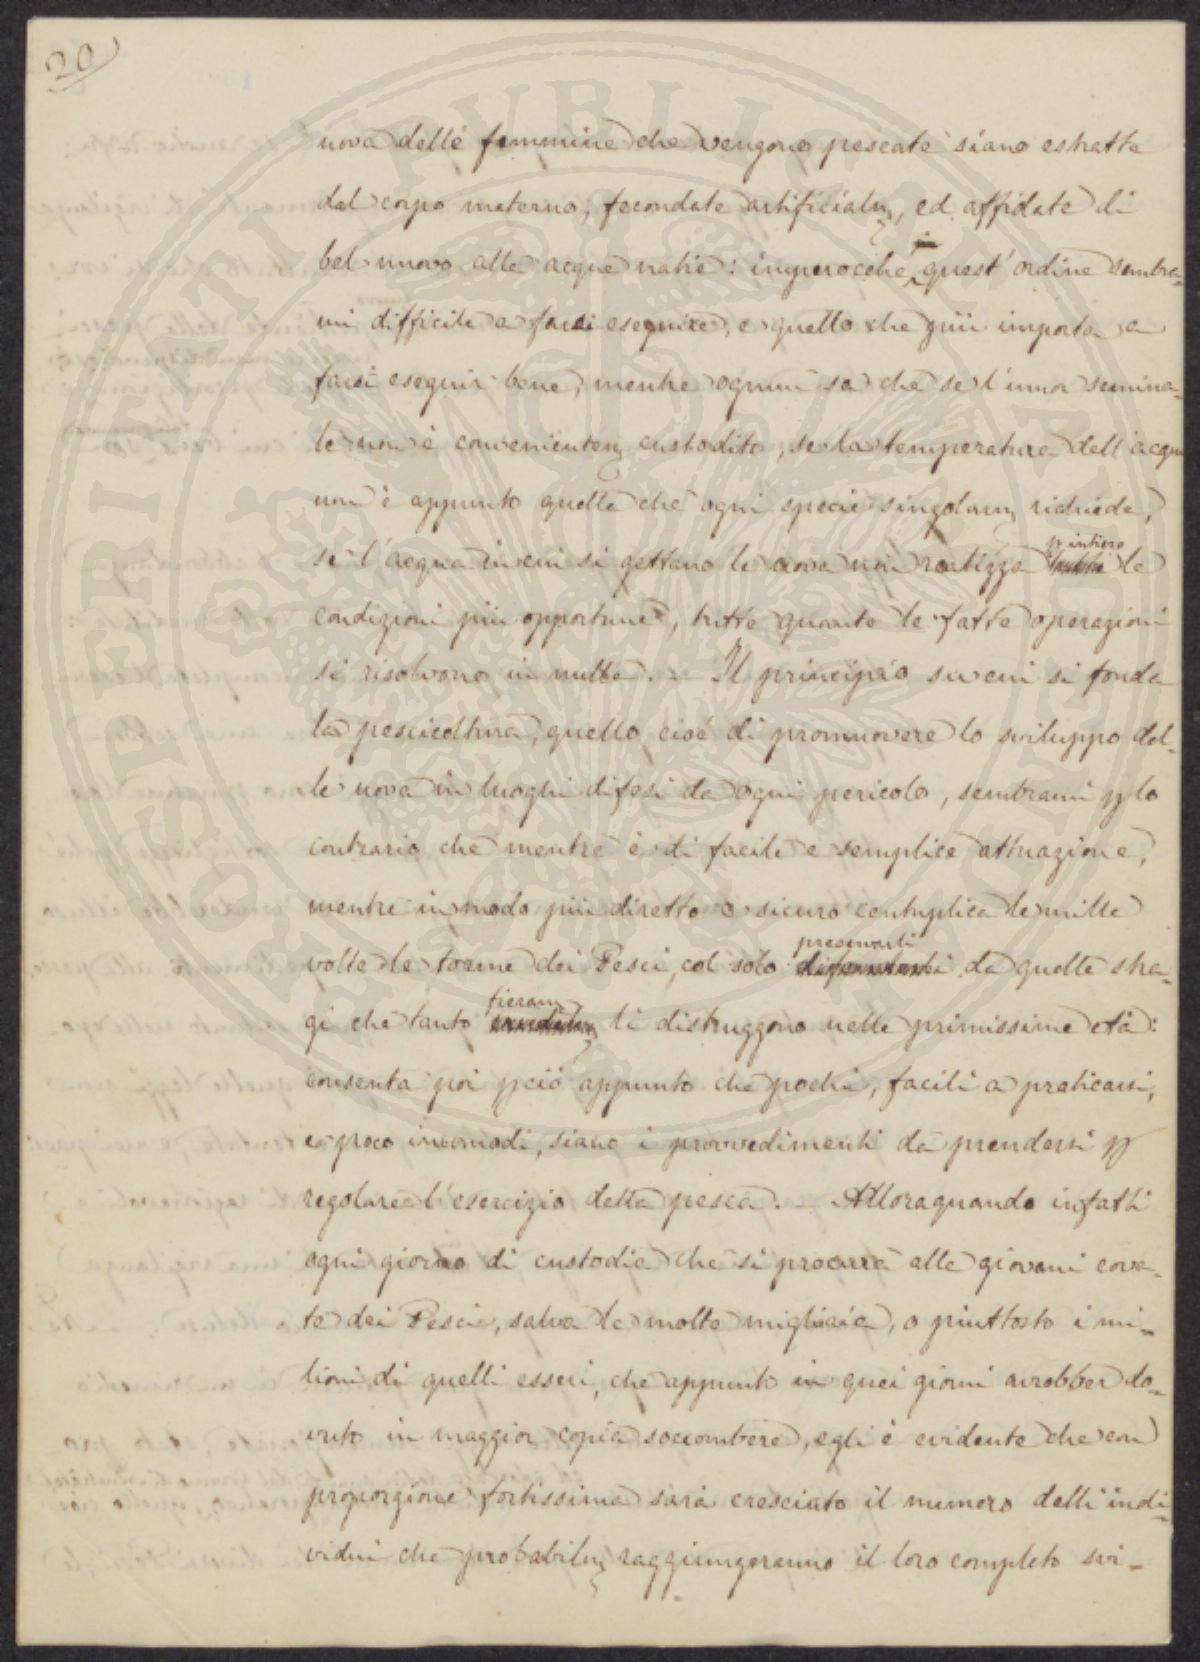 20
uova delle femmine che vengono pescate siano estratte
dal corpo materno, fecondate artificialm, ed affidate di
bel nuovo alle acque natie: imperocchè in quest'ordine sembra-
mi difficile a farsi eseguire, e quello che più importa a
farsi eseguir bene, mentre ognuni sa che se l'umor semina-
le non è convenientem custodito, se la temperatura dell'acqua
non è appunto quella che ogni specie singolarm richiede,
se l'acqua in cui si gettano le uova non realizza p intiero le
condizioni più opportune, tutte quante le fatte operazioni
si risolvono in nulla. = Il principio su cui si fonda
la pescicoltura, quello cioè di promuovere lo sviluppo del-
le uova in luoghi difesi da ogni pericolo, sembrami p lo
contrario che mentre è di facile e semplice attuazione,
mentre in modo più diretto e sicuro centuplica le mille
volte le torme dei Pesci, col solo preservarli da quelle stra-
gi che tanto fieram li distruggono nelle primissime età:
consenta poi pciò appunto che pochi, facili a praticarsi,
e poco incomodi, siano i provvedimenti da prendersi p
regolare l'esercizio della pesca. - Alloraquando infatti
ogni giorno di custodia che si procurra alle giovani cova-
te dei Pesci, salva le molte migliaia, o piuttosto i mi-
lioni di quelli esseri, che appunto in quei giorni avrebber do-
vuto in maggior copia soccombere, egli è evidente che con
proporzione fortissima sarà cresciuto il numero delli indi-
vidui che probabilm raggiungeranno il loro completo svi-
PROSPERITATI PUBLICAE AUGENDAE